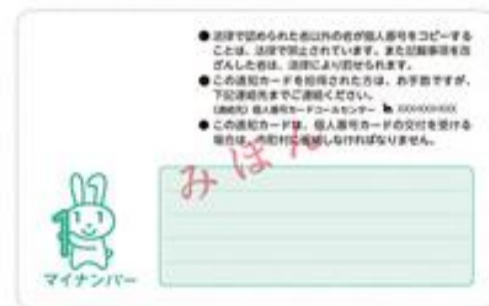 ● 法律で認められた者以外の者が個人番号をコピーする
ことは、法律で禁止されています。また記載事項を改
ざんした者は、法律により罰せられます。
● この通知カードを拾得された方は、お手数ですが、
下記連絡先までご連絡ください。
(連絡先) 個人番号カードコールセンター
● この通知カードは、個人番号カードの交付を受ける
場合は、市町村に返納しなければなりません。
みほん
マイナンバー